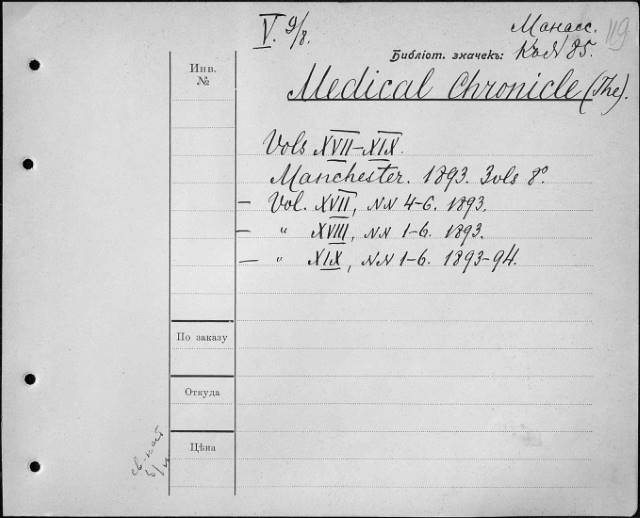 V. 9/8.
Манасс.
119
Библіот. значекъ: К. № 85.
Инв.
№
Medical Chronicle (The).
Vols XVII–XIX.
Manchester. 1893. 3 vls 8°
— Vol. XVII, NN 4-6. 1893.
— " XVIII, NN 1-6. 1893.
— " XIX, NN 1-6. 1893-94.
По заказу
Откуда
Цѣна